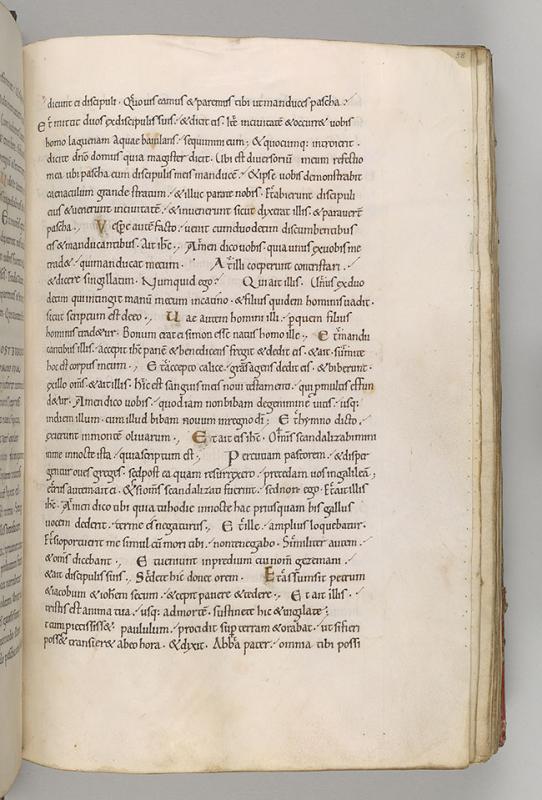 58
dicunt ei discipuli. Quo uis eamus & paremus tibi ut manduces pascha.
Et mittit duos ex discipulis suis. & dicit eis. Ite in ciuitatē & occurr& uobis
homo lagenam aquae baiulans. sequimini eum; & quocumq; introierit.
dicite dnō domus quia magister dicit. Ubi est diuersoriū meum refectio
mea. ubi pascha cum discipulis meis manducē. & ipse uobis demonstrabit
caenaculum grande stratum. & illuc parate nobis. Et abierunt discipuli
eius & uenerunt in ciuitatē. & inuenerunt sicut dixerat illis. & parauerē
pascha., Vespe autē facto. uenit cum duodecim discumbentibus
eis & manducantibus. Ait ihc., Amen dico uobis. quia unus ex uobis me
trad& qui manducat mecum. At illi coeperunt contristari.
& dicere singillatim. Numquid ego. Qui ait illis. Unus ex duo
decim qui intingit manū mecum in catino. & filius quidem hominis uadit.
sicut scriptum est de eo., Uae autem homini illi. p quem filius
hominis trad&ur. Bonum erat ei si non ess& natus homo ille., Et mandu
cantibus illis. accepit ihc panē & benedicens fregit & dedit eis. & ait. sumite
hoc est corpus meum., Et accepto calice. gras agens dedit eis. & biberunt.
ex illo oms. & ait illis. Hic est sanguis meus noui testamenti. qui p multis effun
d&ur. Amen dico uobis. quod iam non bibam de genimine uitis. usq;
in diem illum. cum illud bibam nouum in regno di; Et hymno dicto.
exierunt in monte oliuarum., Et ait eis ihc. Oms scandalizabimini
in me in nocte ista. quia scriptum est., Percutiam pastorem. & disper
gentur oues gregis. sed post ea quam resurrexero. precedam uos in galileā;
Petrus autem ait ei. & si oms scandalizati fuerint. sed non ego. Et ait illi
ihc. Amen dico tibi quia tu hodie in nocte hac priusquam bis gallus
uocem dederit. ter me es negaturus., Et ille. amplius loquebatur.
Et si oportuerit me simul cū mori tibi. non te negabo. Similiter autem
& oms dicebant., Et ueniunt in predium cui nom gezemani.
& ait discipulis suis., Sedete hic donec orem. Et assumsit petrum
& iacobum & iohem secum. & cepit pauere & tedere., Et ait illis.
tristis est anima mea. usq; ad morte. sustinete hic & uigilate;
paululum. procidit sup terram & orabat. ut si fieri
poss& transir& ab eo hora. & dixit. Abba pater. omnia tibi possi